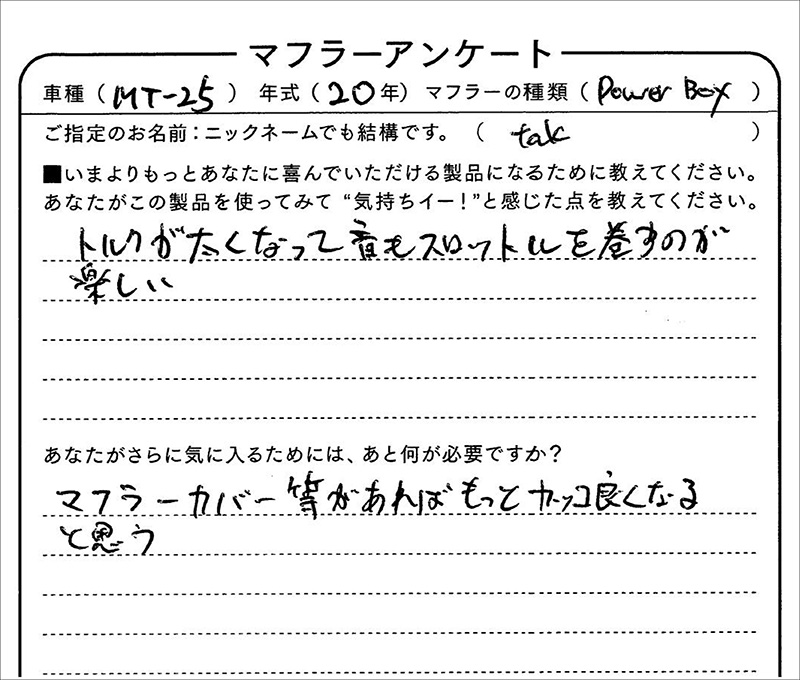 マフラーアンケート
車種（MT-25） 年式（20年） マフラーの種類（Power Box）
ご指定のお名前：ニックネームでも結構です。（ tak ）
■いまよりもっとあなたに喜んでいただける製品になるために教えてください。
あなたがこの製品を使ってみて“気持ちイー！”と感じた点を教えてください。
トルクが太くなって音もスロットルを巻すのが
楽しい
あなたがさらに気に入るためには、あと何が必要ですか？
マフラーカバー等があればもっとカッコ良くなる
と思う